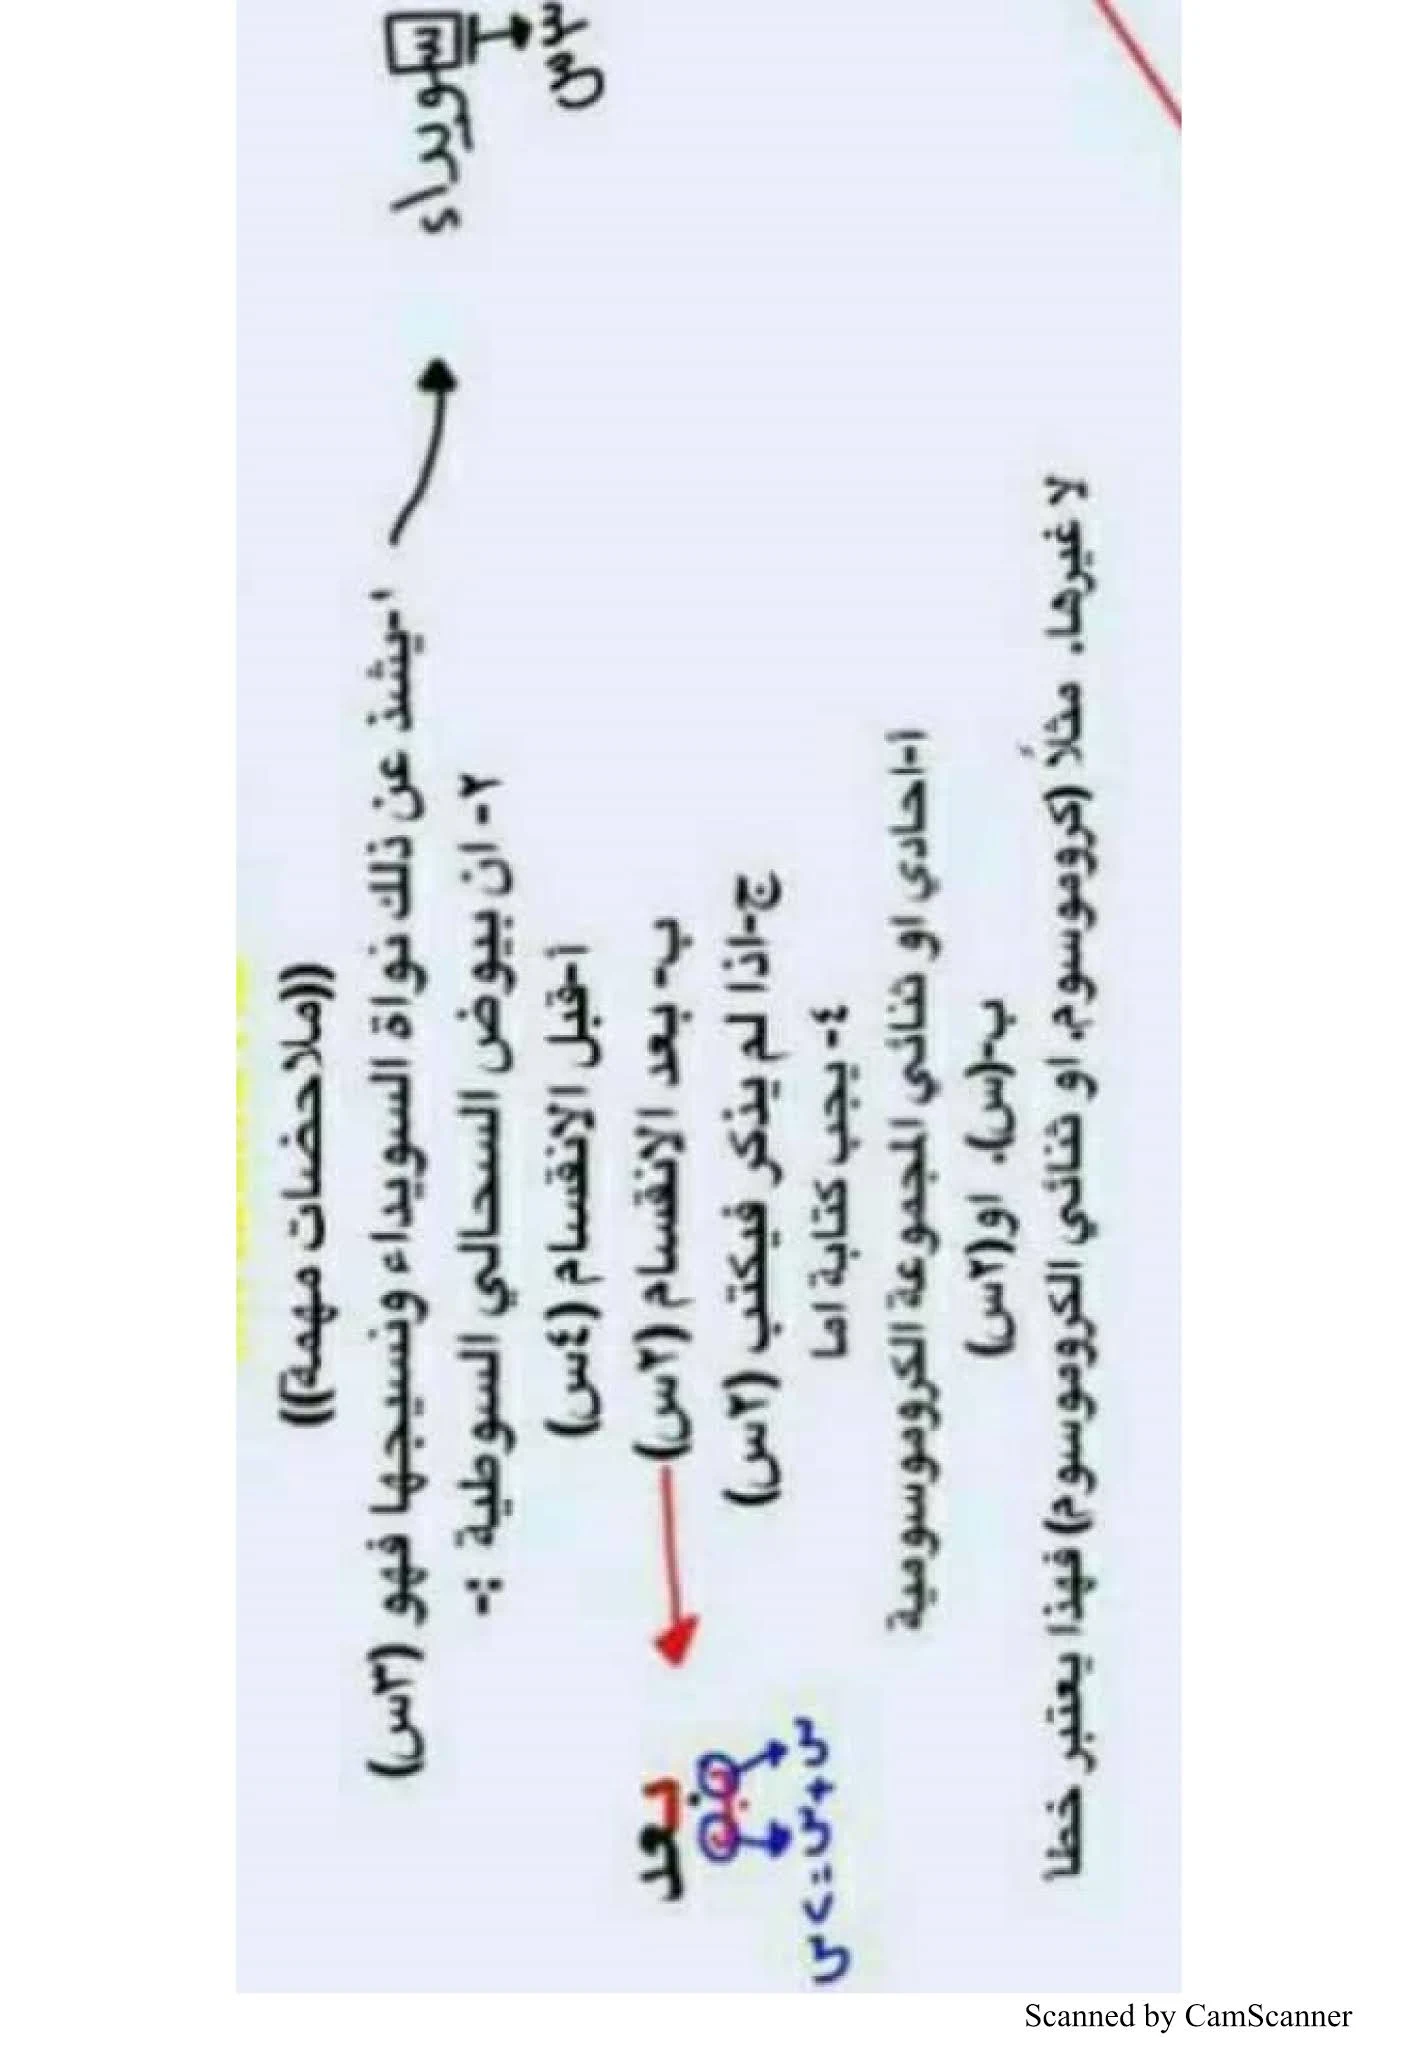 ((ملاحضات مهمة))
١-يشذ عن ذلك نواة السويداء ونسيجها فهو (٣س)
سويداء
٣س
٢- ان بيوض السحالي السوطية :-
أ-قبل الانقسام (٤س)
ب- بعد الانقسام (٢س)
بعد
س + س = ٢س
ج-اذا لم يذكر فيكتب (٢س)
٤- يجب كتابة اما
أ-احادي او ثنائي المجموعة الكروموسومية
ب-(س)، او(٢س)
لا غيرها. مثلاً (كروموسوم، او ثنائي الكروموسوم) فهذا يعتبر خطأ
Scanned by CamScanner